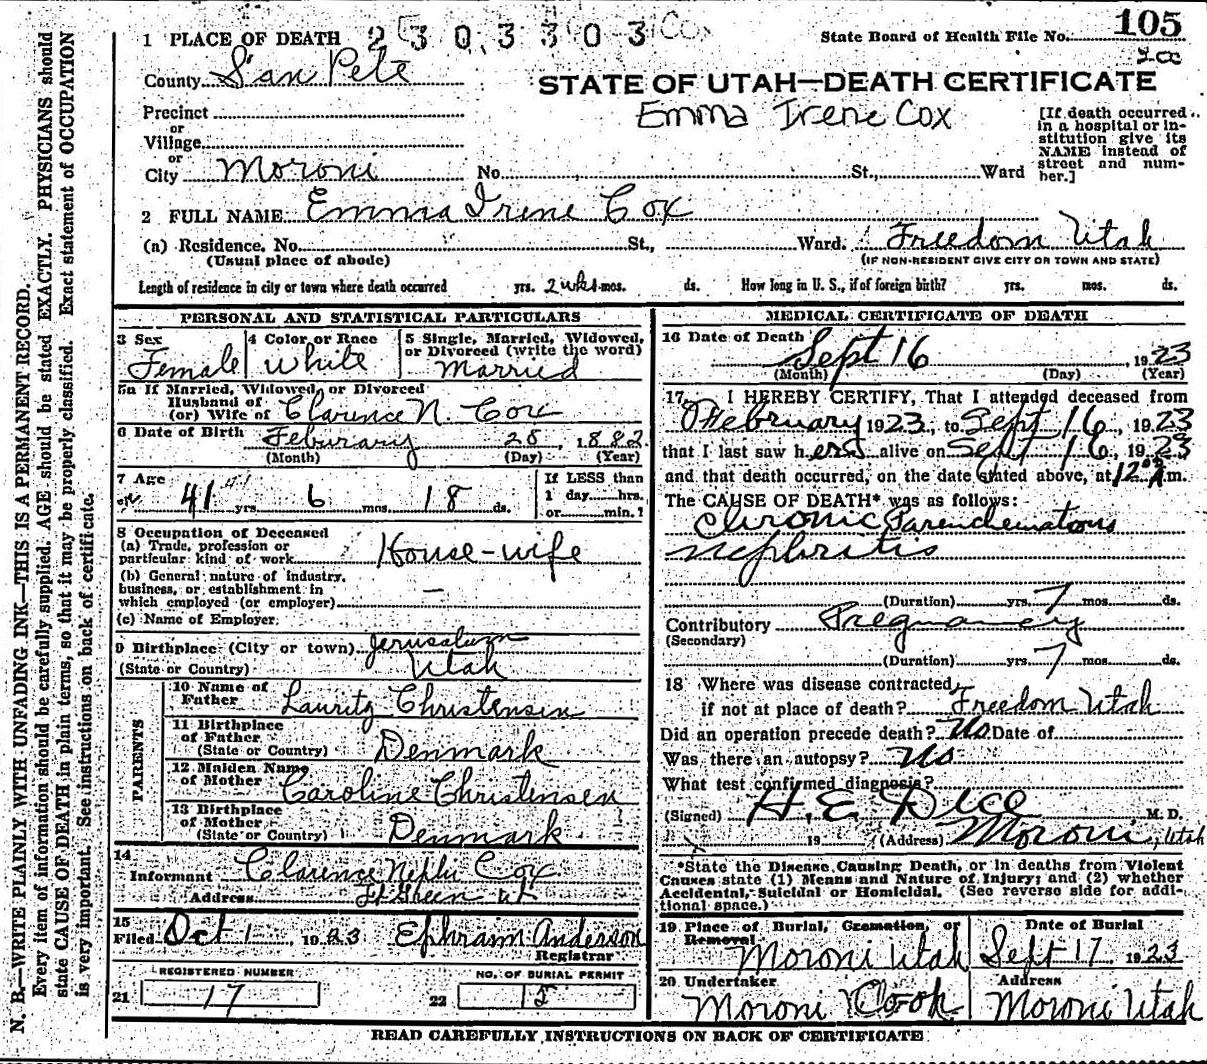 1 PLACE OF DEATH 2303303 Cox
State Board of Health File No. 105
County San Pete
STATE OF UTAH—DEATH CERTIFICATE
Emma Irene Cox
Precinct
or
Village
or
City Moroni No. St., Ward
[If death occurred in a hospital or in-
stitution give its
NAME instead of
street and num-
ber.]
2 FULL NAME Emma Irene Cox
(a) Residence. No. St., Ward. Freedom Utah
(Usual place of abode) (IF NON-RESIDENT GIVE CITY OR TOWN AND STATE)
Length of residence in city or town where death occurred yrs. 2 wks mos. ds. How long in U. S., if of foreign birth? yrs. mos. ds.
PERSONAL AND STATISTICAL PARTICULARS
3 Sex Female
4 Color or Race White
5 Single, Married, Widowed,
or Divorced (write the word)
Married
5a If Married, Widowed, or Divorced
Husband of
(or) Wife of Clarence N. Cox
6 Date of Birth Feburary 28, 1882
(Month) (Day) (Year)
7 Age 41 yrs. 6 mos. 18 ds.
If LESS than
1 day hrs.
or min.?
8 Occupation of Deceased
(a) Trade, profession or
particular kind of work House-wife
(b) General nature of industry,
business, or establishment in
which employed (or employer) —
(c) Name of Employer
9 Birthplace (City or town) Jerusalum
(State or Country) Utah
PARENTS
10 Name of
Father Lauritz Christensen
11 Birthplace
of Father
(State or Country) Denmark
12 Maiden Name
of Mother Caroline Christensen
13 Birthplace
of Mother
(State or Country) Denmark
14
Informant Clarence Nephi Cox
Address Ft Green Ut
15
Filed Oct 1, 1923 Ephraim Anderson
Registrar
REGISTERED NUMBER
21 17
NO. OF BURIAL PERMIT
22 15
MEDICAL CERTIFICATE OF DEATH
16 Date of Death Sept 16 1923
(Month) (Day) (Year)
17 I HEREBY CERTIFY, That I attended deceased from
February 1923, to Sept 16, 1923
that I last saw her alive on Sept 16, 1923
and that death occurred, on the date stated above, at m.
The CAUSE OF DEATH* was as follows:
Chronic Parenchematous
nephritis
(Duration) yrs. 7 mos. ds.
Contributory Pregnancy
(Secondary)
(Duration) yrs. 7 mos. ds.
18 Where was disease contracted,
if not at place of death? Freedom Utah
Did an operation precede death? No Date of
Was there an autopsy? No
What test confirmed diagnosis?
(Signed) H. E. Dice M. D.
19 (Address) Moroni, Utah
*State the Disease Causing Death, or in deaths from Violent
Causes state (1) Means and Nature of Injury; and (2) whether
Accidental, Suicidal or Homicidal. (See reverse side for addi-
tional space.)
19 Place of Burial, Cremation, or
Removal Moroni Utah
Date of Burial
Sept 17 1923
20 Undertaker
Moroni Cook
Address
Moroni Utah
READ CAREFULLY INSTRUCTIONS ON BACK OF CERTIFICATE
N. B.—WRITE PLAINLY WITH UNFADING INK—THIS IS A PERMANENT RECORD.
Every item of information should be carefully supplied. AGE should be stated EXACTLY. PHYSICIANS should
state CAUSE OF DEATH in plain terms, so that it may be properly classified. Exact statement of OCCUPATION
is very important. See instructions on back of certificate.